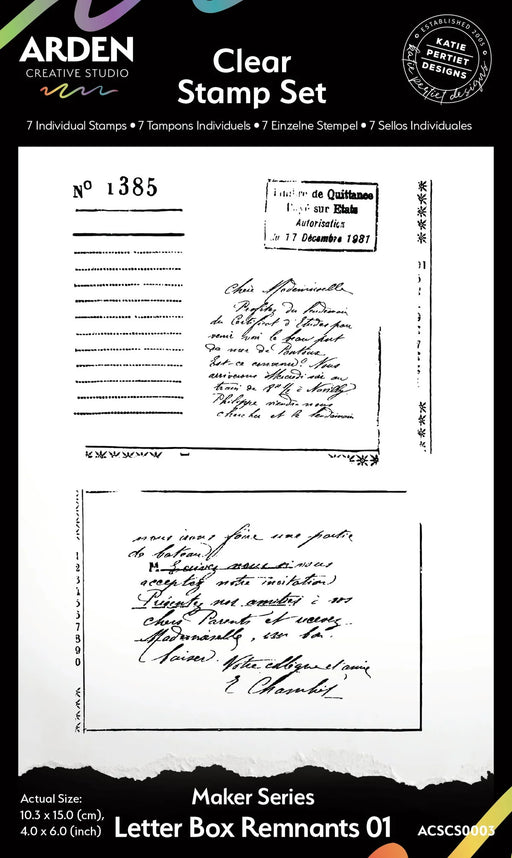 ARDEN
CREATIVE STUDIO
Clear
Stamp Set
ESTABLISHED 2005
KATIE
PERTIET
DESIGNS
katie pertiet designs
7 Individual Stamps • 7 Tampons Individuels • 7 Einzelne Stempel • 7 Sellos Individuales
Nº 1385
de Quittance
sur Etats
Autorisation
du 17 Décembre 1981
Chère Mademoiselle
Profitez du lendemain
du Certificat d'Etudes pour
venir voir le beau port
de mer de
Est-ce convenu? Nous
arriverons Mercredi soir au
train de 8h ½ à
Philippe viendra nous
chercher et le lendemain
nous irons faire une partie
de bateau
M. nous si vous
acceptez notre invitation
Présentez nos amitiés à vos
chers Parents et recevez
Mademoiselle, un bon
baiser. Votre collègue et amie
E
1
2
3
4
5
6
7
8
9
0
Actual Size:
10.3 x 15.0 (cm),
4.0 x 6.0 (inch)
Maker Series
Letter Box Remnants 01
ACSCS0003